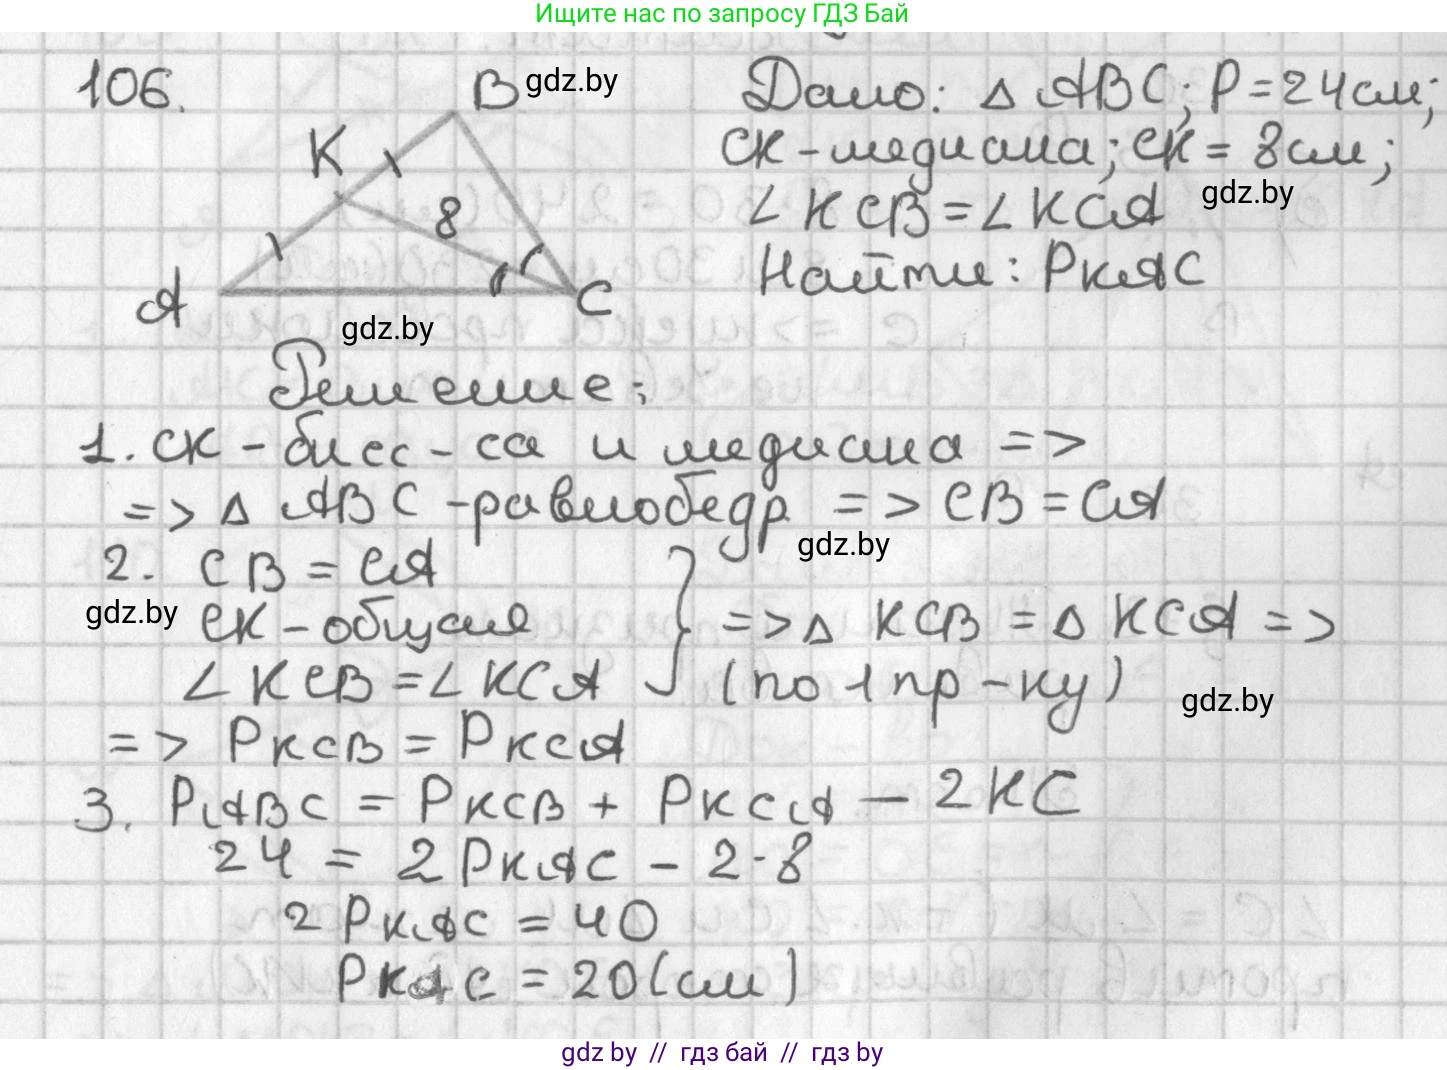 Ищите нас по запросу ГДЗ Бай
106.
B gdz.by
K
8
A
C
gdz.by
Дано: △ ABC; P = 24 см;
CK - медиана; CK = 8 см;
gdz.by
∠ KCB = ∠ KCA
Найти: PKAC
Решение:
1. CK - бисс - са и медиана =>
=> △ ABC - равнобедр => CB = CA
gdz.by
2. CB = CA
gdz.by
CK - общая
∠ KCB = ∠ KCA
=> △ KCB = △ KCA =>
(по 1 пр - ку)
gdz.by
=> PKCB = PKCA
3. PABC = PKCB + PKCA - 2KC
24 = 2 PKAC - 2·8
2 PKAC = 40
PKAC = 20 (см)
gdz.by // гдз бай // гдз by